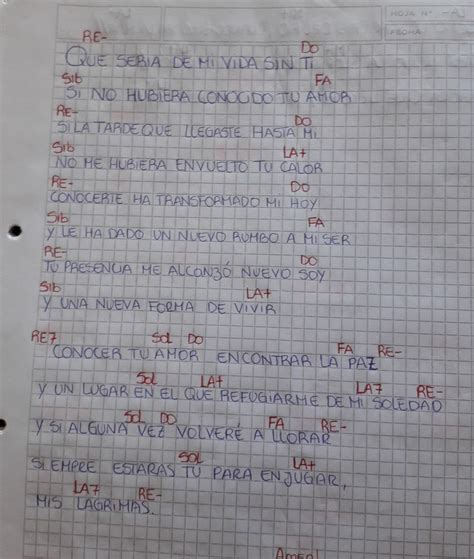 HOJA N°
FECHA
RE- DO
QUE SERIA DE MI VIDA SIN TI
SIb FA
SI NO HUBIERA CONOCIDO TU AMOR
RE- DO
SI LA TARDE QUE LLEGASTE HASTA MI
SIb LA+
NO ME HUBIERA ENVUELTO TU CALOR
RE- DO
CONOCERTE HA TRANSFORMADO MI HOY
SIb FA
Y LE HA DADO UN NUEVO RUMBO A MI SER
RE- DO
TU PRESENCIA ME ALCONZÓ NUEVO SOY
SIb LA+
Y UNA NUEVA FORMA DE VIVIR
RE7 Sol DO FA RE-
CONOCER TU AMOR ENCONTRAR LA PAZ
Sol LA+ LA7 RE-
Y UN LUGAR EN EL QUE REFUGIARME DE MI SOLEDAD
Sol DO FA RE-
Y SI ALGUNA VEZ VOLVERÉ A LLORAR
SOL LA+
SIEMPRE ESTARAS TU PARA ENJUGAR,
LA7 RE-
MIS LAGRIMAS.
Amen!